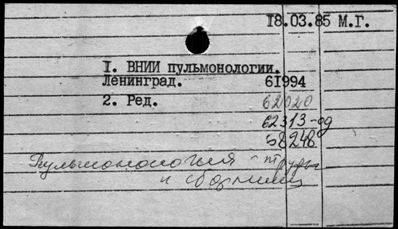 18.03.85 М.Г.
1. ВНИИ пульмонологии.
Ленинград. 61994
2. Ред. 62020
62313-дд
58248
Пульмонология - труды
и сборники